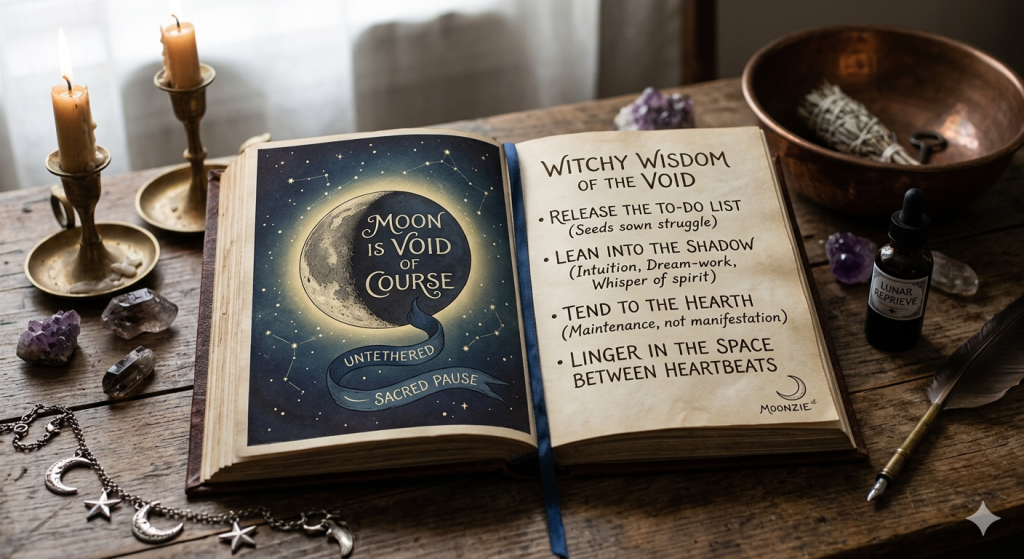 MOON
IS VOID
OF
COURSE
UNTETHERED
SACRED PAUSE
WITCHY WISDOM
OF THE VOID
• RELEASE THE TO-DO LIST
(Seeds sown struggle)
• LEAN INTO THE SHADOW
(Intuition, Dream-work,
Whisper of spirit)
• TEND TO THE HEARTH
(Maintenance, not manifestation)
• LINGER IN THE SPACE
BETWEEN HEARTBEATS
MOONZIE
LUNAR
REPRIEVE